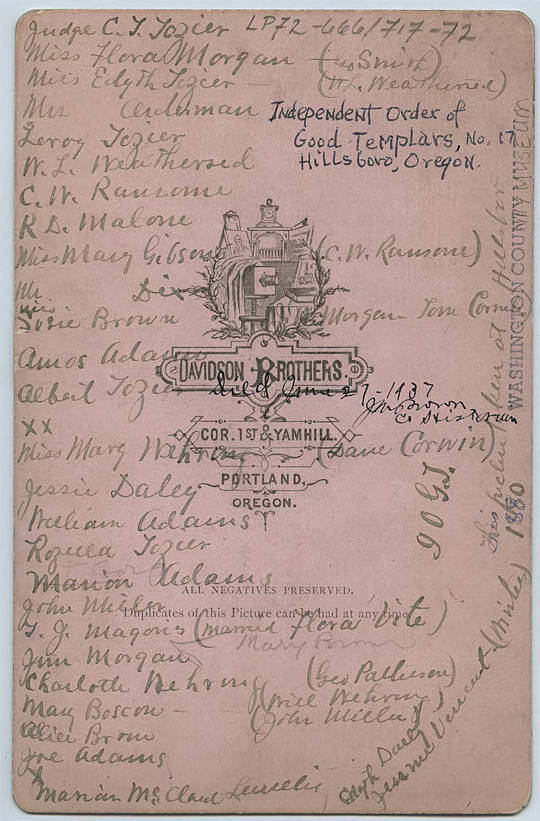 Judge C. T. Tozier LP72-666/717-72
Miss Flora Morgan (Geo Smith)
Miss Edyth Tozier — (W. L. Weathered)
Mrs Alderman
Independent Order of
Good Templars, No. 17
Hillsboro, Oregon.
Leroy Tozier
W. L. Weathersed
C. W. Ransome
R. D. Malone
Miss Mary Gibson (C. W. Ransome)
Mr. Dix
Miss
Susie Brown Morgan - Tom
Amos Adams
DAVIDSON BROTHERS.
Albert Tozier died June 27-1937
J M Brown
Co Historian
XX
COR. 1ST & YAMHILL,
Miss Mary Wehrung (Dave Corwin)
PORTLAND,
OREGON.
Jessie Daley
William Adams
Rozella Tozier
Marion Adams
ALL NEGATIVES PRESERVED.
John Miller
Duplicates of this Picture can be had at any time.
G. J. Magoris (married Flora Vite)
Mary Brown
Jim Morgan
Charlotte Wehrung (Geo Patterson)
May Boscow — (Will Wehrung)
(John Miller)
Alice Brown
Joe Adams
Marian McClaud
Edyth Daley
Jennie Vincent (Minter)
I O G. T.
This picture taken at Hillsboro
1880
WASHINGTON COUNTY MUSEUM